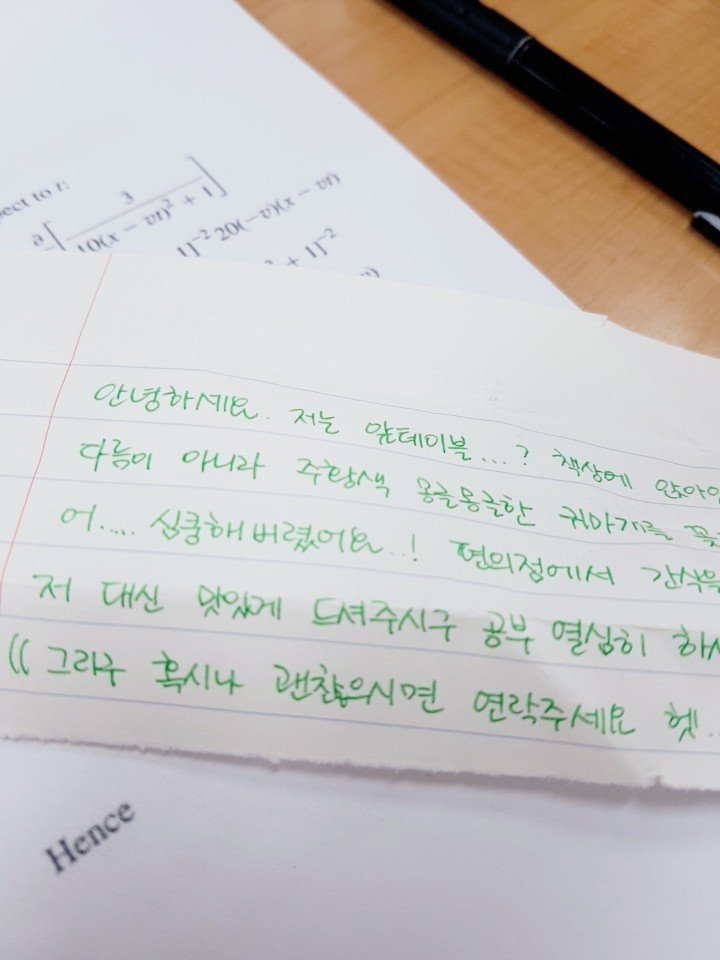 pect to t:
∂[3 / 10(x − vt)² + 1]
1]⁻² 20(−v)(x − vt)
+ 1]⁻²
안녕하세요. 저는 앞테이블...? 책상에 앉아
다름이 아니라 주황색 몽글몽글한 귀마개를
어..... 심쿵해버렸어요..! 편의점에서 간식을
저 대신 맛있게 드셔주시구 공부 열심히 하
(( 그리구 혹시나 괜찮으시면 연락주세요 헷..
Hence